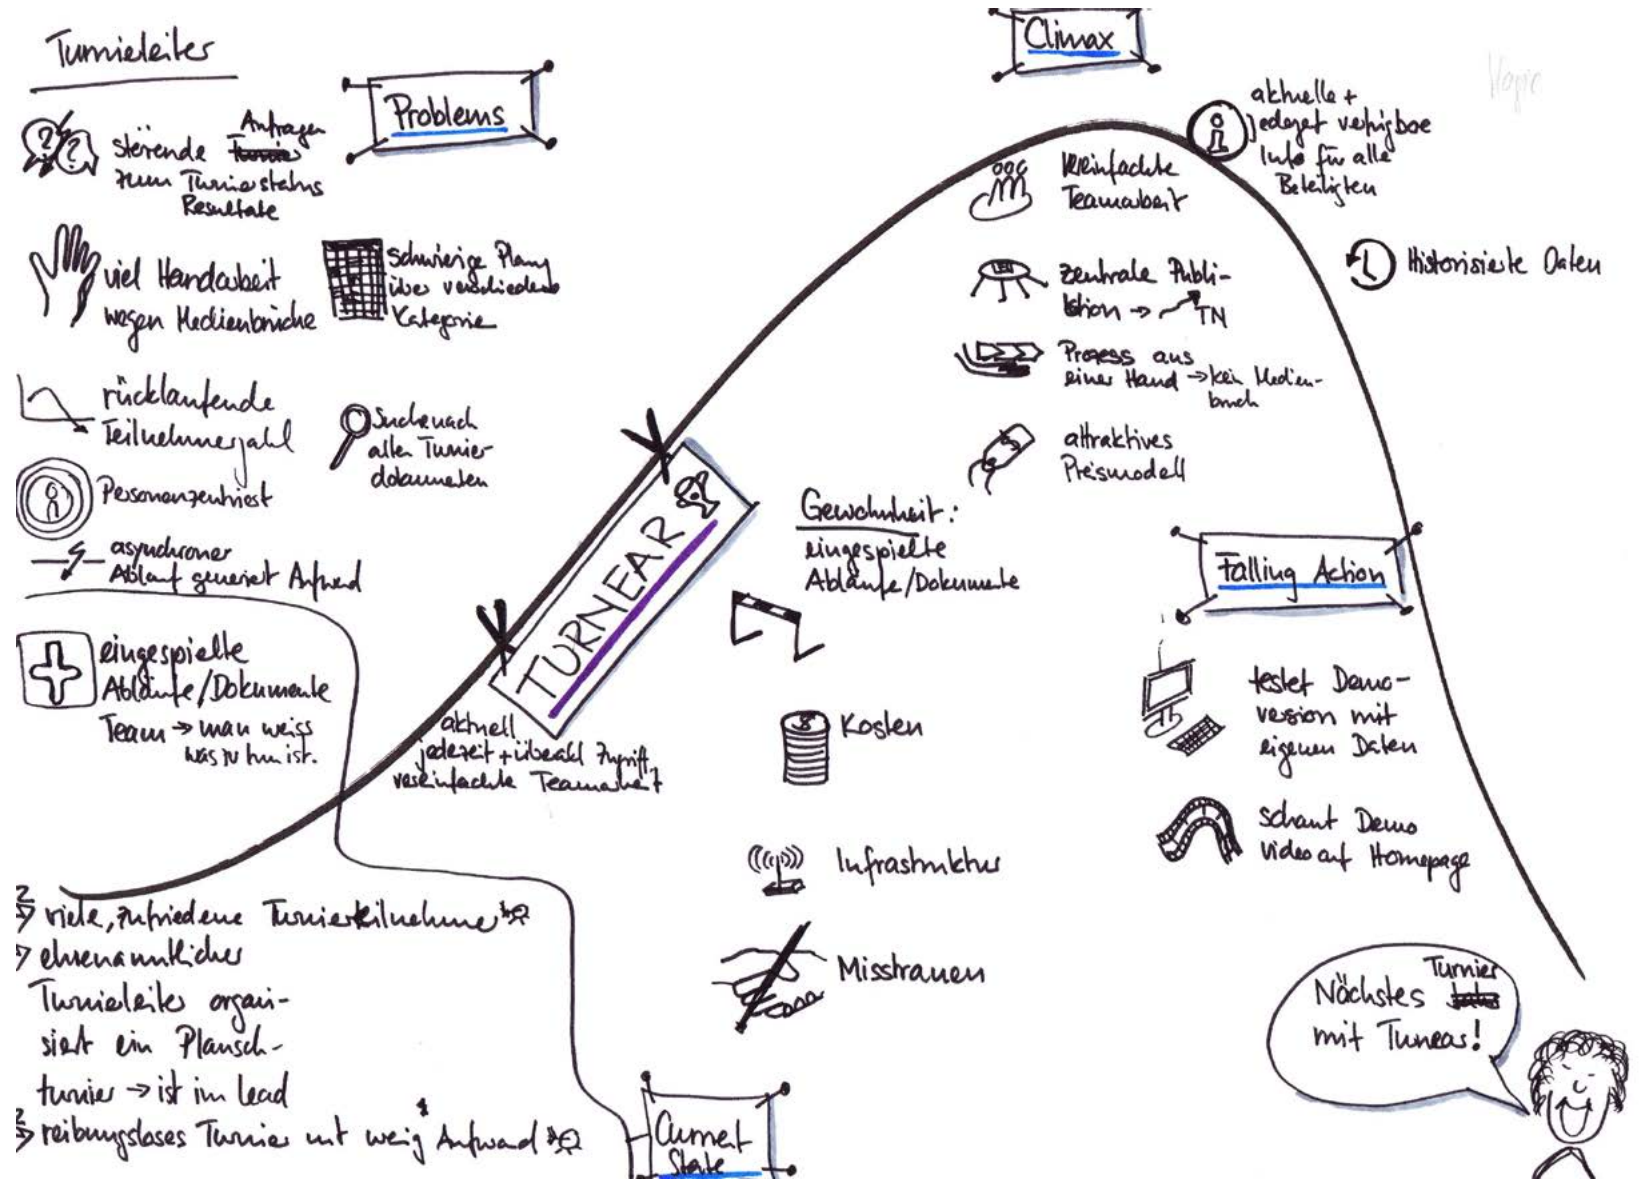 Turnierleiter
Problems
störende Anfragen
zum Turnierstatus
Resultate
viel Handarbeit
wegen Medienbrüche
schwierige Planung
über verschiedene
Kategorie
rücklaufende
Teilnehmerzahl
Suche nach
allen Turnier-
dokumenten
Personenzentriert
asynchroner
Ablauf generiert Aufwand
eingespielte
Abläufe/Dokumente
Team → man weiss
was zu tun ist.
→ viele, zufriedene Turnierteilnehmer
→ ehrenamtlicher
Turnierleiter organi-
siert ein Plausch-
turnier → ist im Lead
→ reibungsloses Turnier mit wenig Aufwand
Current
State
TURNEAR
aktuell
jederzeit + überall Zugriff
vereinfachte Teamarbeit
Gewohnheit:
eingespielte
Abläufe/Dokumente
$ Kosten
Infrastruktur
Misstrauen
Climax
vereinfachte
Teamarbeit
zentrale Publi-
kation → TN
Prozess aus
einer Hand → kein Medien-
bruch
attraktives
Preismodell
i aktuelle +
jederzeit verfügbare
Info für alle
Beteiligten
Historisierte Daten
Falling Action
testet Demo-
version mit
eigenen Daten
schaut Demo
video auf Homepage
Nächstes Turnier
mit Turnear!